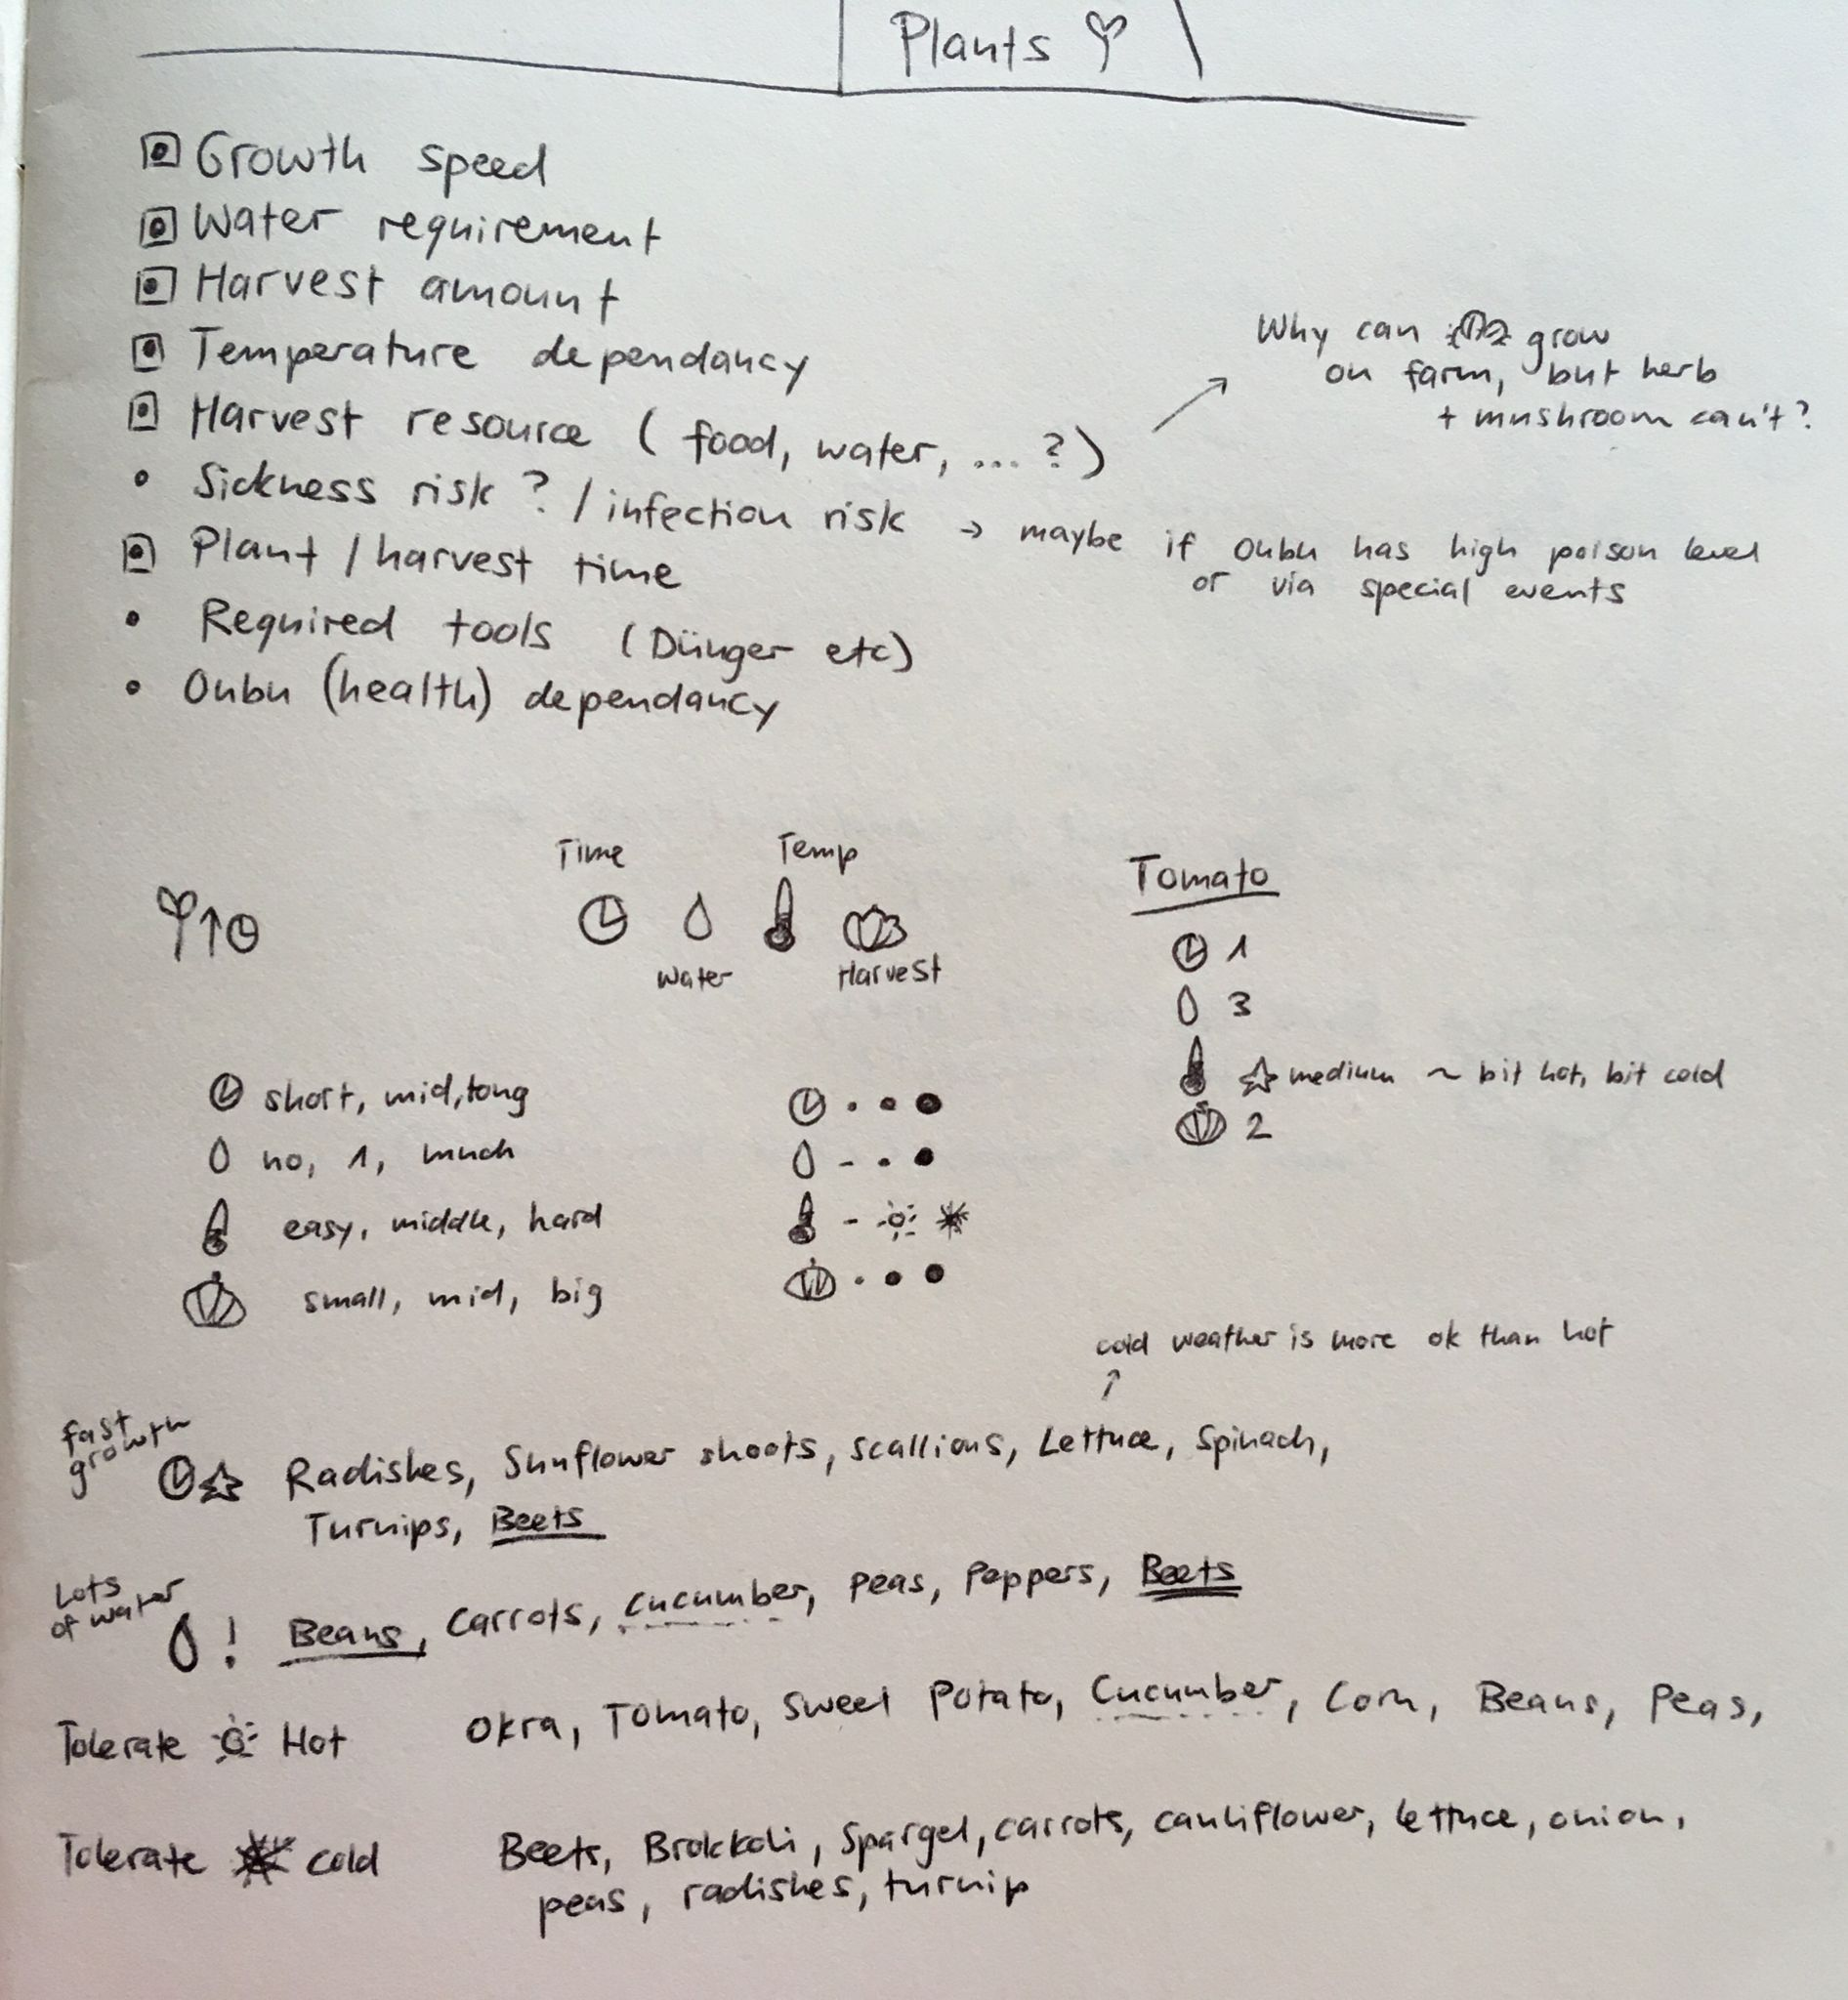 Plants
Growth speed
Water requirement
Harvest amount
Temperature dependancy
Harvest resource (food, water, ... ?)
Why can grow
on farm, but herb
+ mushroom can't?
Sickness risk? / infection risk → maybe if Oubu has high poison level
or via special events
Plant / harvest time
Required tools (Dünger etc)
Oubu (health) dependancy
Time Temp
Water Harvest
Tomato
1
3
medium ~ bit hot, bit cold
2
short, mid, long
no, 1, much
easy, middle, hard
small, mid, big
cold weather is more ok than hot
↑
fast
growth
Radishes, Sunflower shoots, scallions, Lettuce, Spinach,
Turnips, Beets
Lots
of water
! Beans, Carrots, Cucumber, Peas, Peppers, Beets
Tolerate Hot Okra, Tomato, Sweet Potato, Cucumber, Corn, Beans, Peas,
Tolerate cold Beets, Brokkoli, Spargel, carrots, cauliflower, lettuce, onion,
peas, radishes, turnip